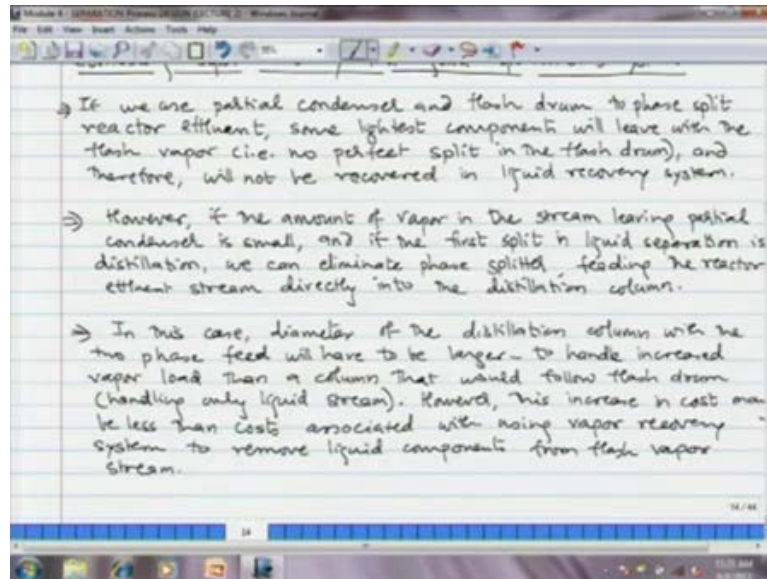 Module 4 - SEPARATION Process DESIGN (LECTURE 2) - Windows Journal
File Edit View Insert Actions Tools Help
→ If we use partial condenser and flash drum to phase split
reactor effluent, some lightest components will leave with the
flash vapor (i.e. no perfect split in the flash drum), and
therefore, will not be recovered in liquid recovery system.
⇒ However, if the amount of vapor in the stream leaving partial
condenser is small, and if the first split in liquid separation is
distillation, we can eliminate phase splitter, feeding the reactor
effluent stream directly into the distillation column.
⇒ In this case, diameter of the distillation column with the
two phase feed will have to be larger - to handle increased
vapor load than a column that would follow flash drum
(handling only liquid stream). However, this increase in cost may
be less than costs associated with using vapor recovery
system to remove liquid components from flash vapor
stream.
14 / 44
14